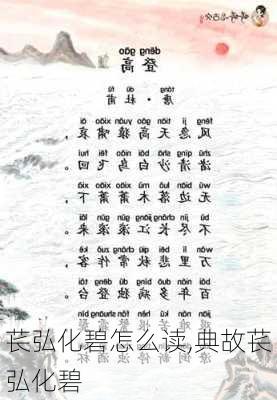 dēng gāo
登高
táng dù fǔ
唐·杜甫
fēng jí tiān gāo yuán xiào āi
风急天高猿啸哀，
zhǔ qīng shā bái niǎo fēi huí
渚清沙白鸟飞回。
wú biān luò mù xiāo xiāo xià
无边落木萧萧下，
bù jìn cháng jiāng gǔn gǔn lái
不尽长江滚滚来。
wàn lǐ bēi qiū cháng zuò kè
万里悲秋常作客，
bǎi nián duō bìng dú dēng tái
百年多病独登台。
苌弘化碧怎么读,典故苌
弘化碧